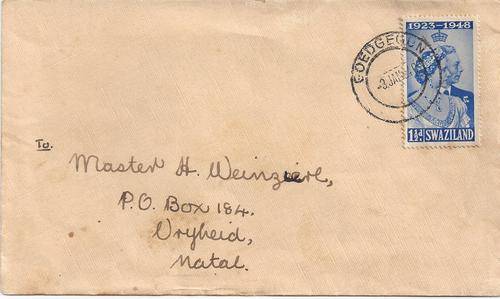 1923-1948
GOEDGEGUN
1½d. SWAZILAND
To.
Master H. Weinzierl,
P.O. Box 184.
Vryheid,
Natal.